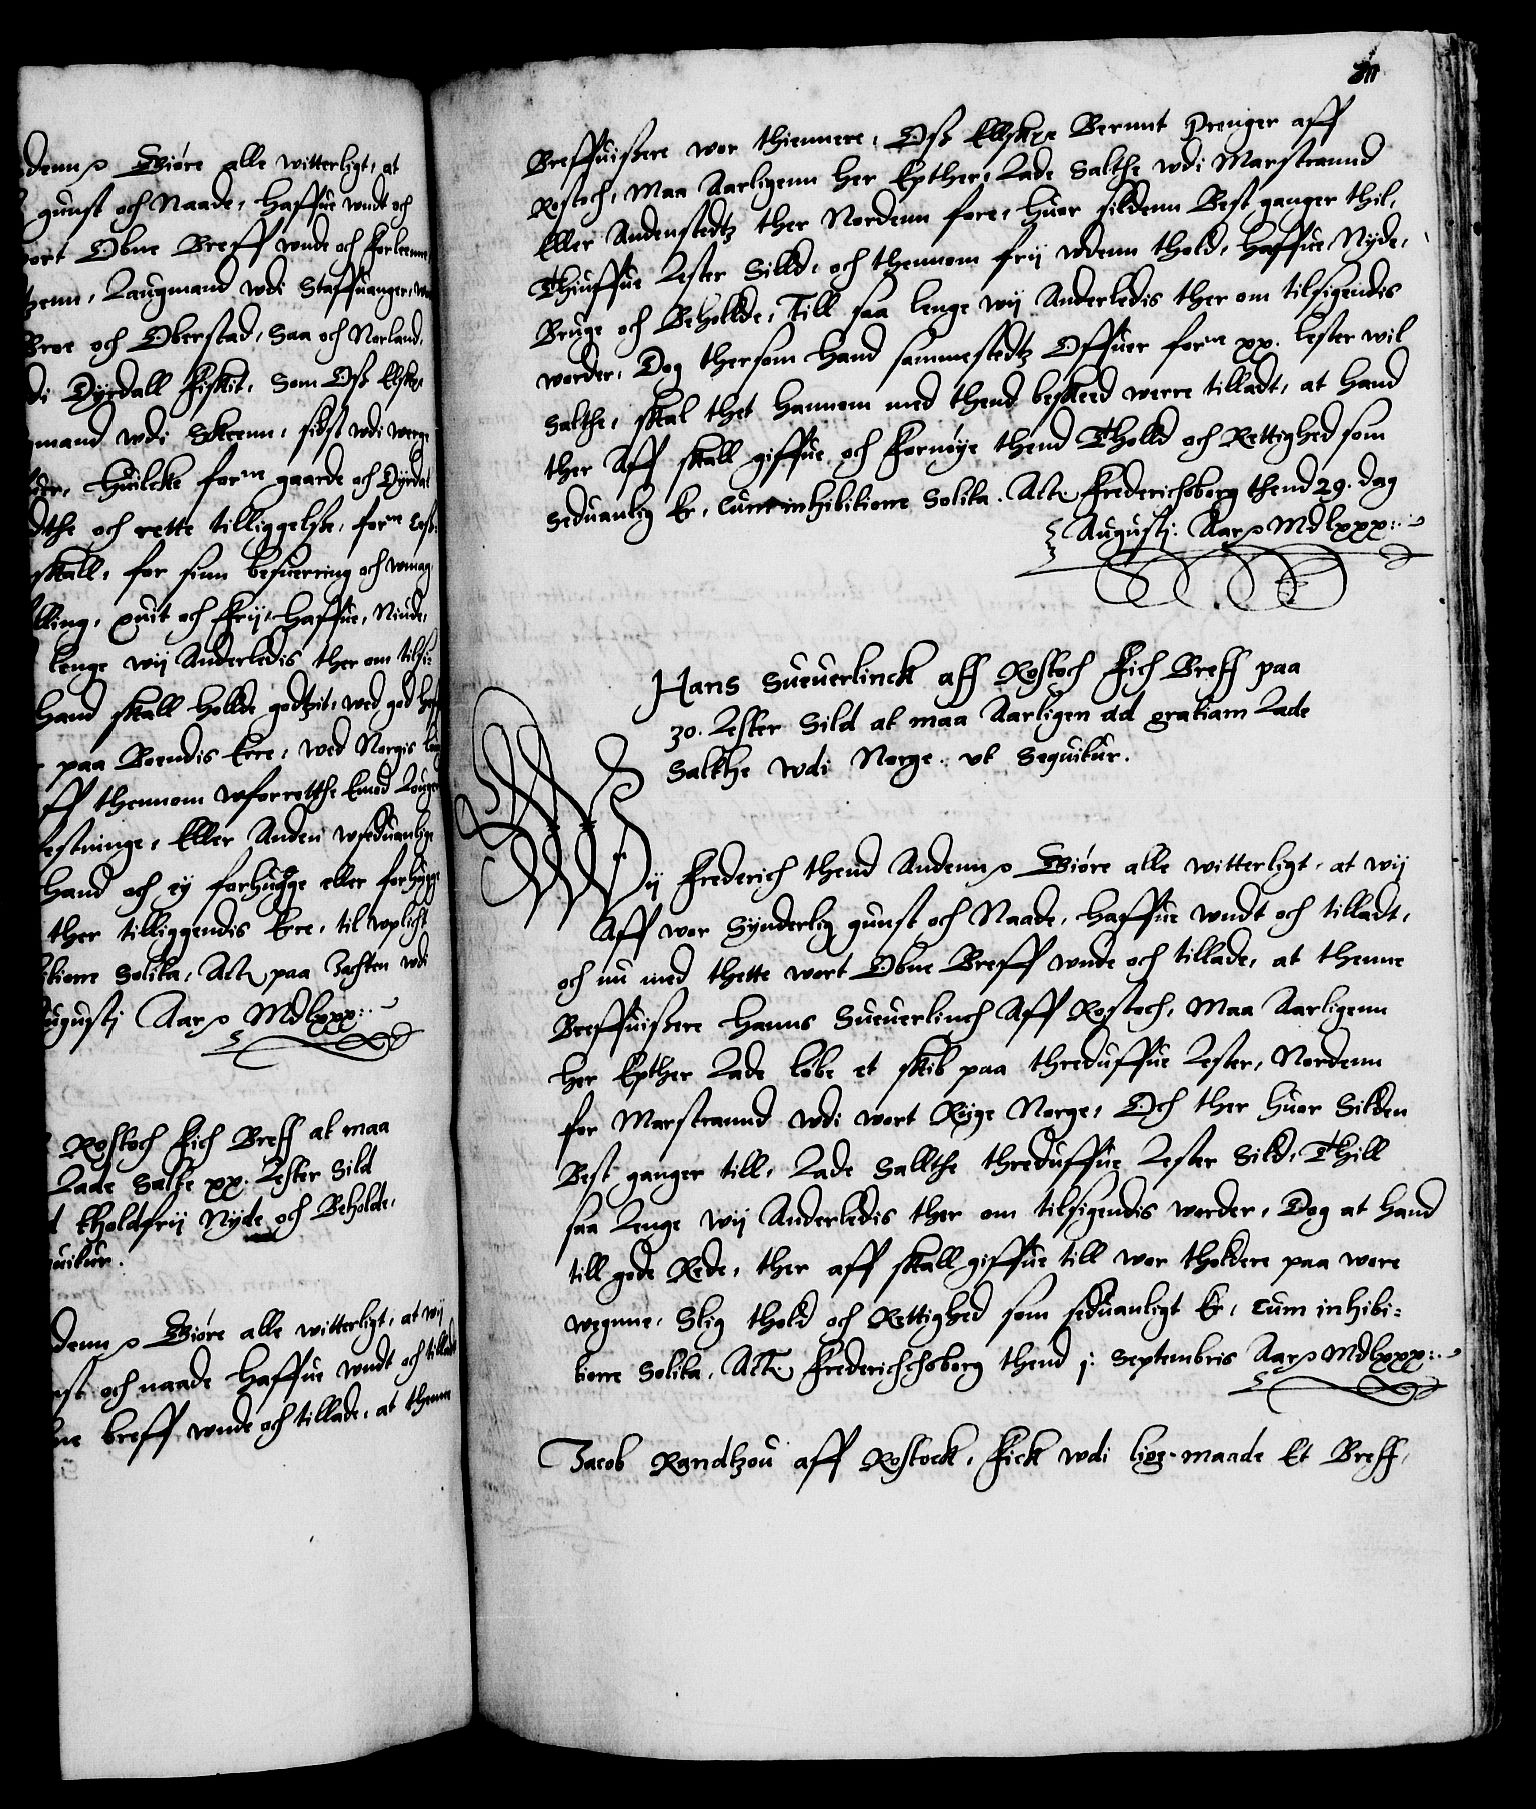 denn etc Giøre alle witterligt, at
gunst och Naade, haffue wndt och
wort Obne Breff wnde och forleenne
tzenn, Laugmand wdi Staffuanger, wor
Broe och Oberstad, Saa och Norland,
di Dyrdall fiskit, Som Oss Elske
gmand wdi Skeenn, sidst wdi werge
huilcke forne gaarde och Dyrdal
dthe och rette tilliggelse, forne
skall, for sinn besuerring och wmag,
lling, quit och frij, haffue, Niude,
lenge wij Anderledis ther om tilsi=
hand skall hollde godtzit, wed god heffd
paa Boendis Ere, wed Norgis lou
ff thennom wforretthe Emod Lougen
estninge, Eller Anden wseduanlig
hand och ey forhugge eller forhugge
ther tilliggendis Ere, til wplicht
itione Solita, Actum paa Jachten wdi
ugustj Aar etc Mdlxxx:.
Rostoch fich Breff at maa
Lade Salte xx. Lester Sild
tholdfrij Nyde och Beholde,
uitur.
denn etc Giøre alle witterligt, at wij
nst och naade haffue wndt och tilladt
ne breff wnde och tillade, at thenne
Breffuissere wor thiennere, Oss Elskee Bernnt Prenger aff
Rostoch, Maa Aarligenn her Epther, Lade Salthe wdi Marstrannd
Eller Andenstedtz ther Nordenn fore, huor sildenn Best ganger thil,
Thiuffue Lester Silld, och thennom frij wdenn thold, haffue, Nyde,
Bruge och Beholde, Till saa lenge wij Anderledis ther om tilsigendis
worder, Dog thersom hand sammestedtz Offuer forne xx. lester wil
Salthe, skal thet hannom med thend beskeed werre tilladt, at hand
ther Aff skall giffue och fornøye thend Tholld och Rettighed som
Seduanlig Er, Cum inhibitione Solita. Actum Frederichsborg thend 29. dag
Augustj. Aar etc Mdlxxx:.
Hans Sueuerlinck aff Rostoch fich Breff paa
30. Lester Sild at maa Aarligen ad gratiam Lade
Salthe wdi Norge. vt Sequitur.
Wij Frederich thend Andenn etc Giøre alle witterligt, at wij
Aff wor Synderlig gunst och Naade, haffue wndt och tilladt,
och nu med thette wort Obne Breff wnde och tillade, at thenne
Breffuissere Hanns Sueuerlinch Aff Rostoch, Maa Aarligenn
her Epther Lade løbe et skib paa threduffue Lester, Nordenn
for Marstrannd wdi wort Rige Norge, Och ther huor Silden
Best ganger till, Lade Sallthe threduffue Lester Sild, Thill
saa Lenge wij Anderledis ther om tilsigendis worder, Dog at hand
till gode Rede, ther aff skall giffue till wor tholdere paa wore
wegnne, Slig thold och Rettighed som seduanligt Er, Cum inhibi=
tione Solita. Actum Frederichschsborg thend j. Septembris Aar etc Mdlxxx:.
Jacob Randtzou aff Rostock, fick wdi lige maade Et Breff,